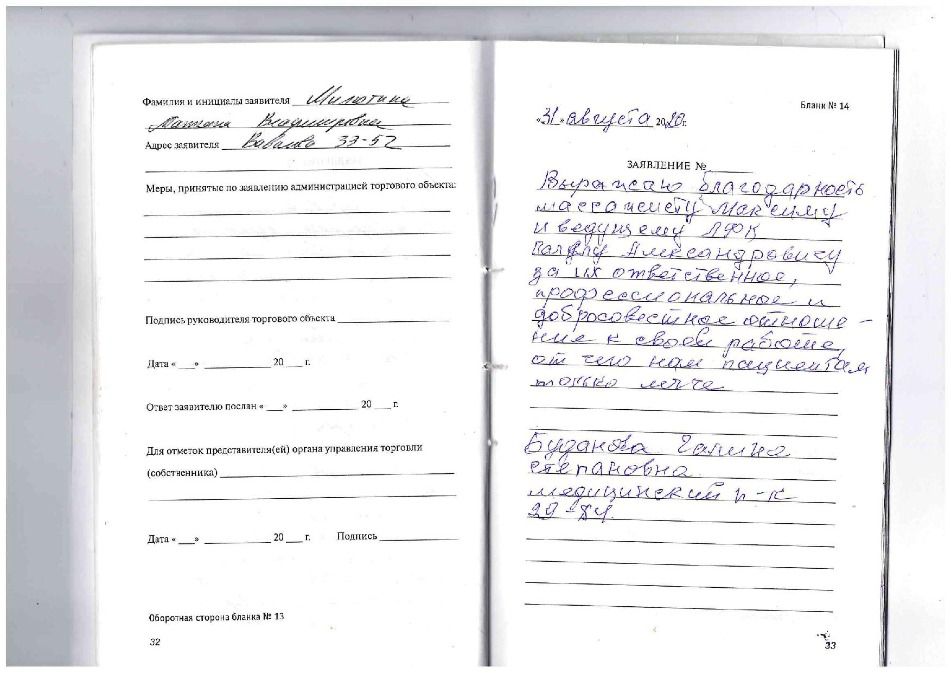 Фамилия и инициалы заявителя Милютина
Татьяна Владимировна
Адрес заявителя Вавилова 33-52
Меры, принятые по заявлению администрацией торгового объекта:
Подпись руководителя торгового объекта
Дата « » 20 г.
Ответ заявителю послан « » 20 г.
Для отметок представителя(ей) органа управления торговли
(собственника)
Дата « » 20 г. Подпись
Оборотная сторона бланка № 13
32
Бланк № 14
«31» августа 2020г.
ЗАЯВЛЕНИЕ №
Выражаю благодарность
массажисту Максиму
и ведущему ЛФК
Александровичу
за их ответственное,
профессиональное и
добросовестное отноше -
ние к своей работе,
от чего нам пациентам
только легче
Буданова Галина
степановна
медицинский п-к
33